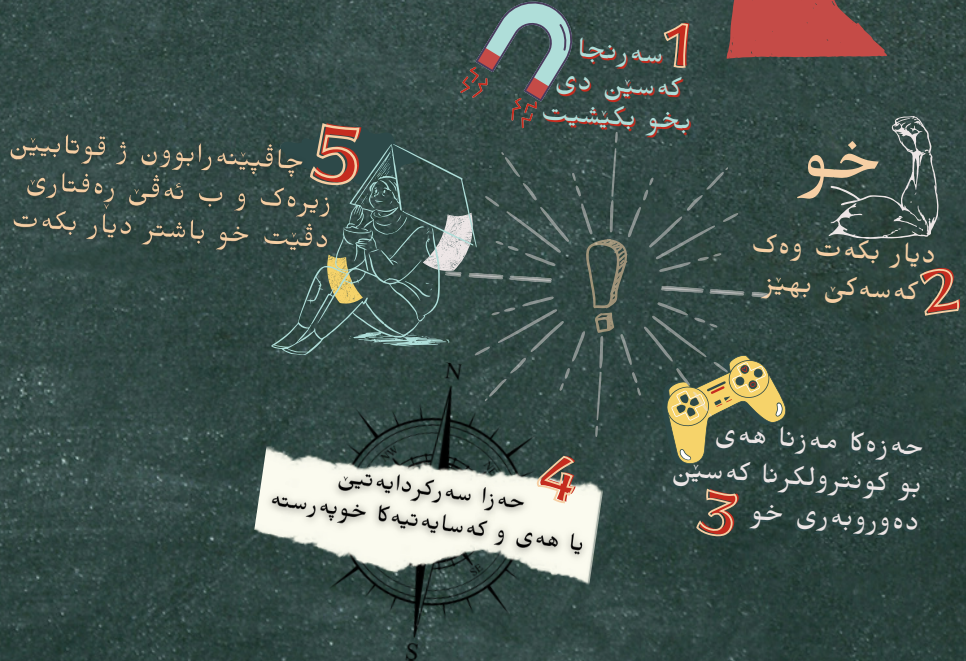 1 سەرنجا
کەسێن دی
بخو بکێشیت
خو
دیار بکەت وەک
2 کەسەکێ بهێز
حەزەکا مەزنا هەی
بو کونترولکرنا کەسێن
دەوروبەری خو 3
4
حەزا سەرکردایەتیێ
یا هەی و کەسایەتیەکا خوپەرستە
5 چاڤپێنەرابوون ژ قوتابیێن
زیرەک و ب ئەڤێ ڕەفتارێ
دڤێت خو باشتر دیار بکەت
N
NW
SE
S